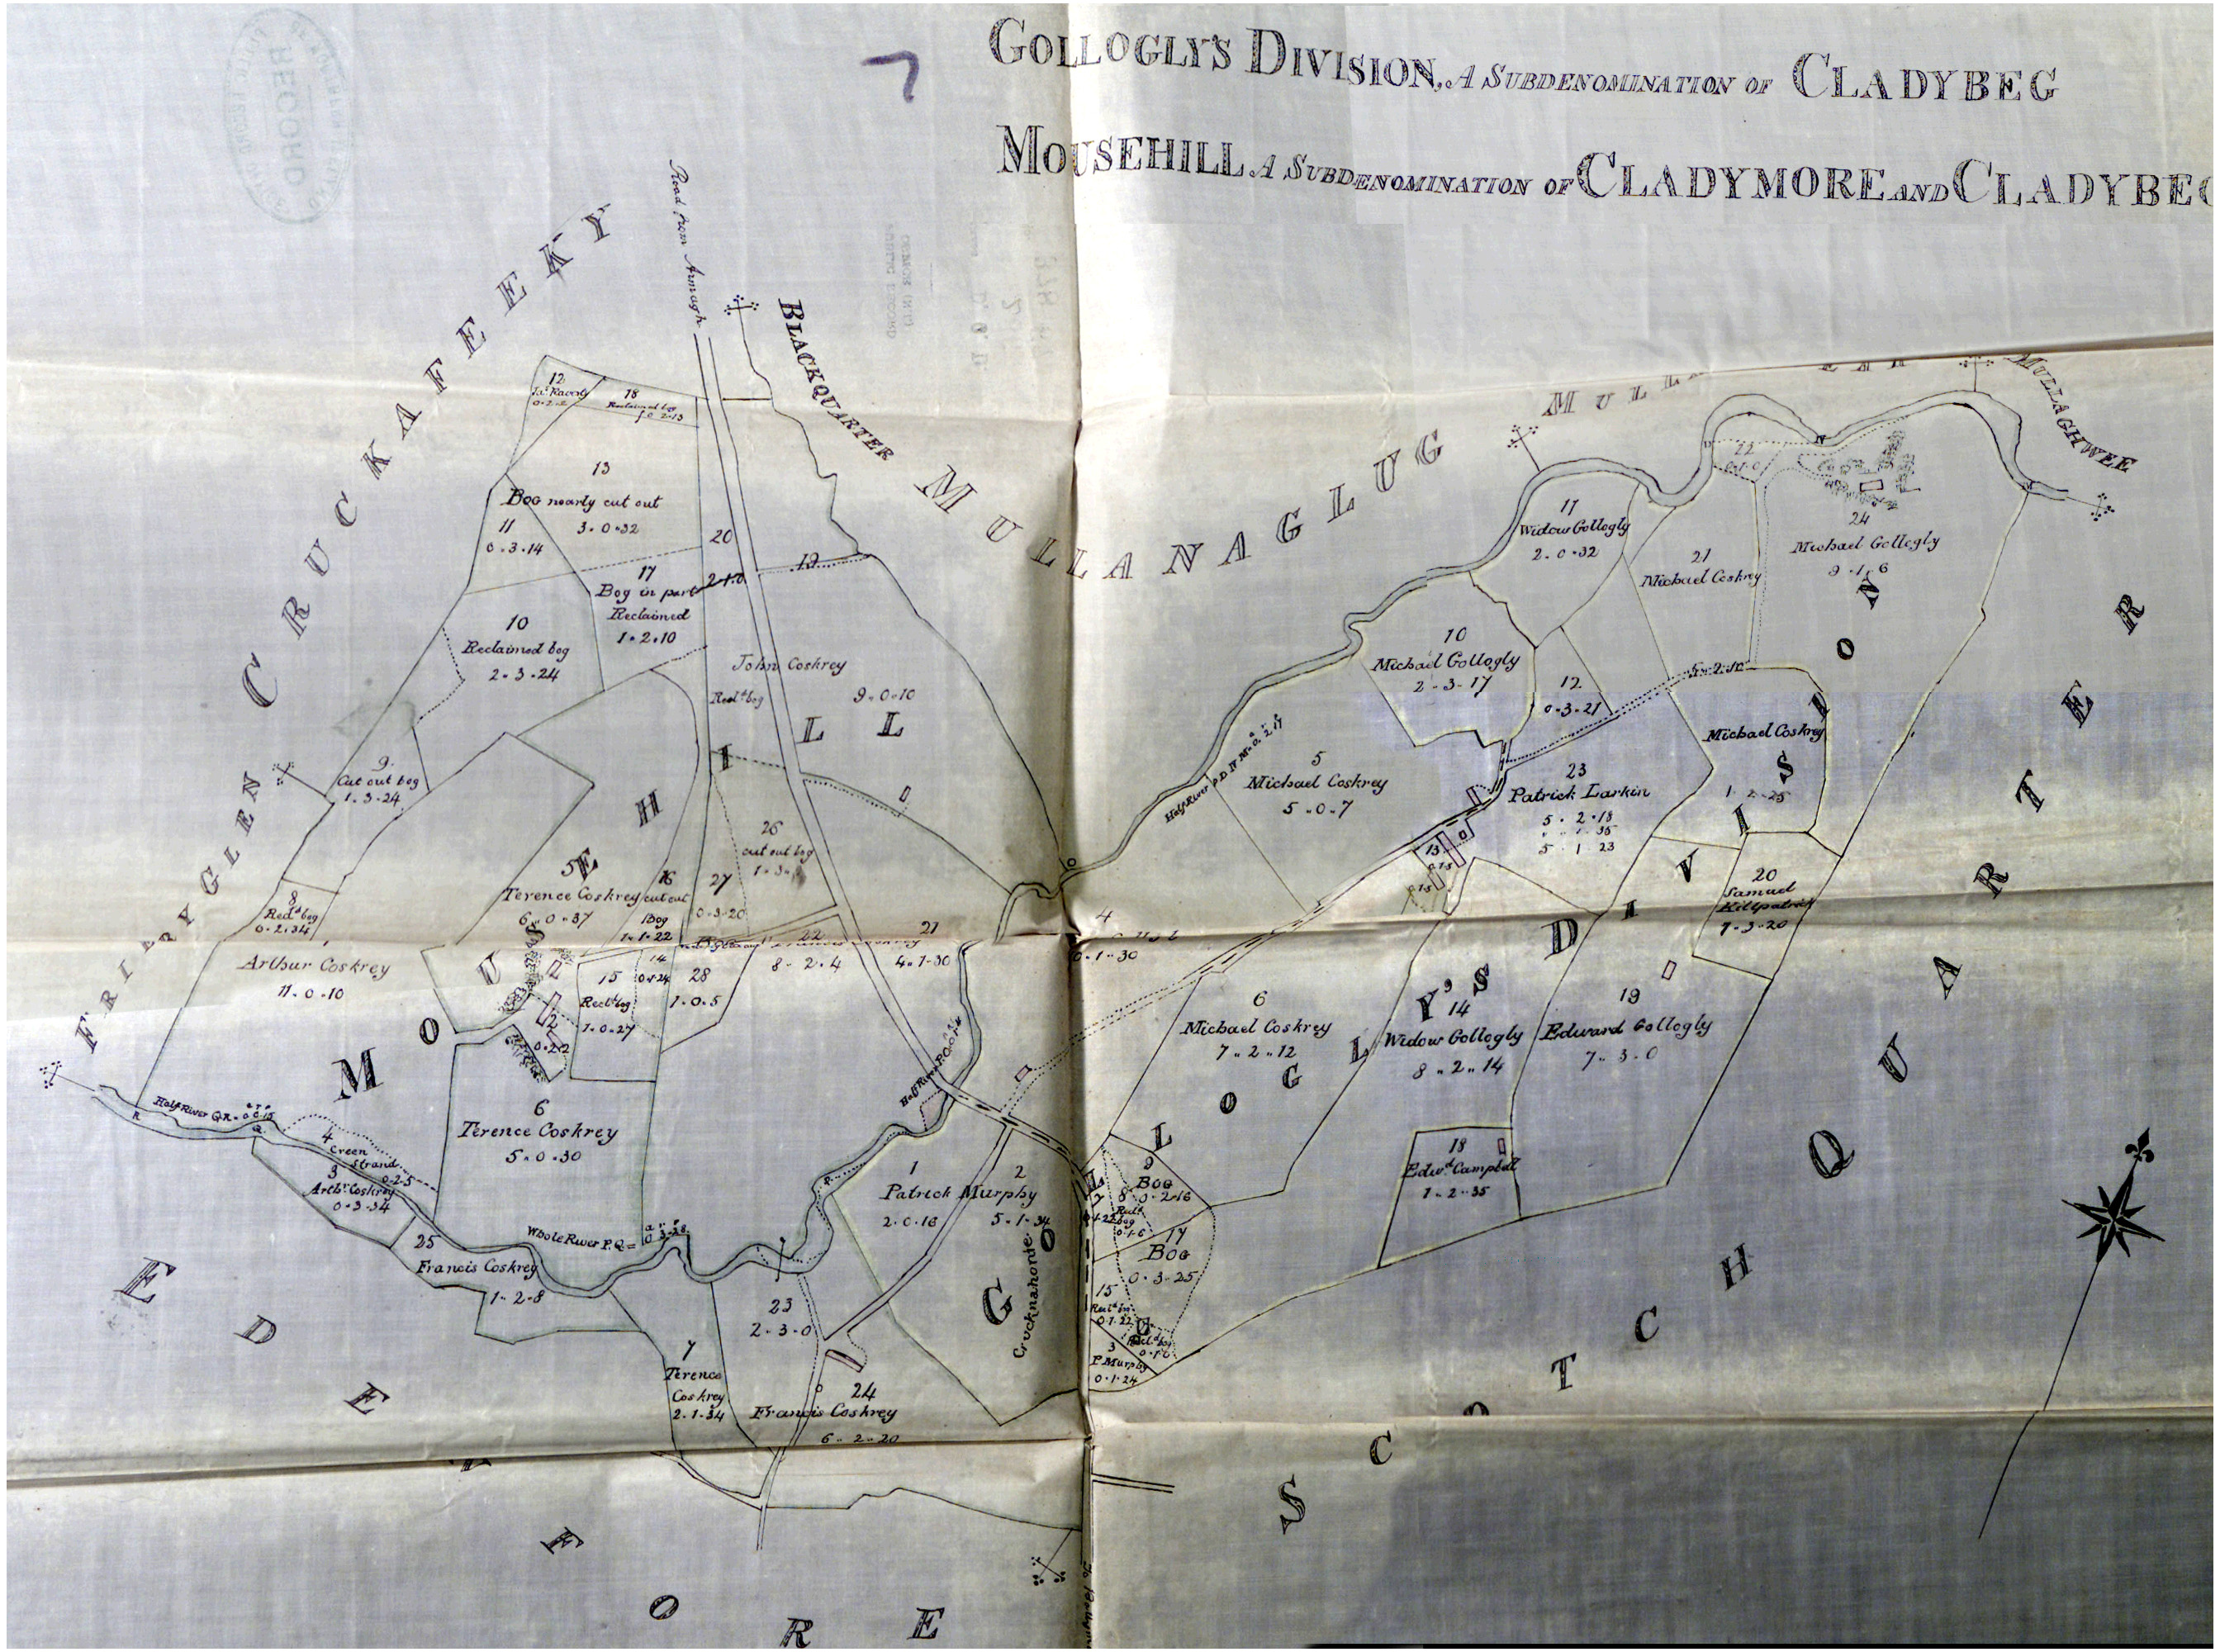 GOLLOGLY'S DIVISION, A SUBDENOMINATION OF CLADYBEG
MOUSEHILL A SUBDENOMINATION OF CLADYMORE AND CLADYBEG
RECORD
Road from Armagh
BLACKQUARTER
CRUCKAFEEKY
MULLANAGLUG
MULLAGHWEE
FRIARYGLEN
MOUSEHILL
GOLLOGLY'S DIVISION
SCOTCH QUARTER
EDE
FORE
12
0.2.2
18
Reclaimed bog
13
Bog nearly cut out
3.0.32
11
0.3.14
20
2.1.0
19
17
Bog in part
Reclaimed
1.2.10
10
Reclaimed bog
2.3.24
John Coskrey
9.0.10
Recld bog
9
Cut out bog
1.3.24
8
Recld bog
0.2.34
Arthur Coskrey
11.0.10
5
Terence Coskrey
6.0.37
16
cut out
Bog
1.1.22
27
0.3.20
26
cut out bog
22
8.2.4
21
4.1.30
14
15
Recld bog
1.0.27
28
1.0.5
2
0.2.2
6
Terence Coskrey
5.0.30
Half River Q.R.
4
Green
Strand
0.2.5
3
Arthr Coskrey
0.3.34
25
Francis Coskrey
1.2.8
Whole River P.Q. =
7
Terence
Coskrey
2.1.34
23
2.3.0
24
Francis Coskrey
6.2.20
Half River P.O.
1
Patrick Murphy
2.0.16
2
5.1.34
Crucknahorde
17
Widow Gollogly
2.0.32
22
0.1.0
24
Michael Gollogly
9.1.6
21
Michael Coskrey
10
Michael Gollogly
2.3.17
12
0.3.21
Michael Coskrey
5
Michael Coskrey
5.0.7
Half River
23
Patrick Larkin
5.2.18
5 1 23
13
20
Samuel
Killpatrick
7.3.20
4
0.1.30
6
Michael Coskrey
7.2.12
14
Widow Gollogly
8.2.14
19
Edward Gollogly
7.3.0
18
Edwd Campbell
1.2.35
9
BOG
0.2.16
8
7
Recld
bog
0.1.6
17
BOG
0.3.25
15
0.1.22
3
P. Murphy
0.1.24